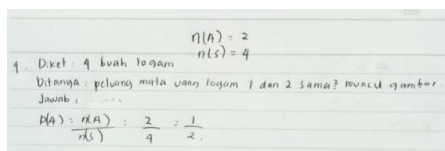 n(A) = 2
n(s) = 4
9. Diket : 4 buah logam
Ditanya : peluang mata uang logam 1 dan 2 sama? muncul gambar.
Jawab :
P(A) : n(A) / n(s) = 2 / 4 = 1 / 2.